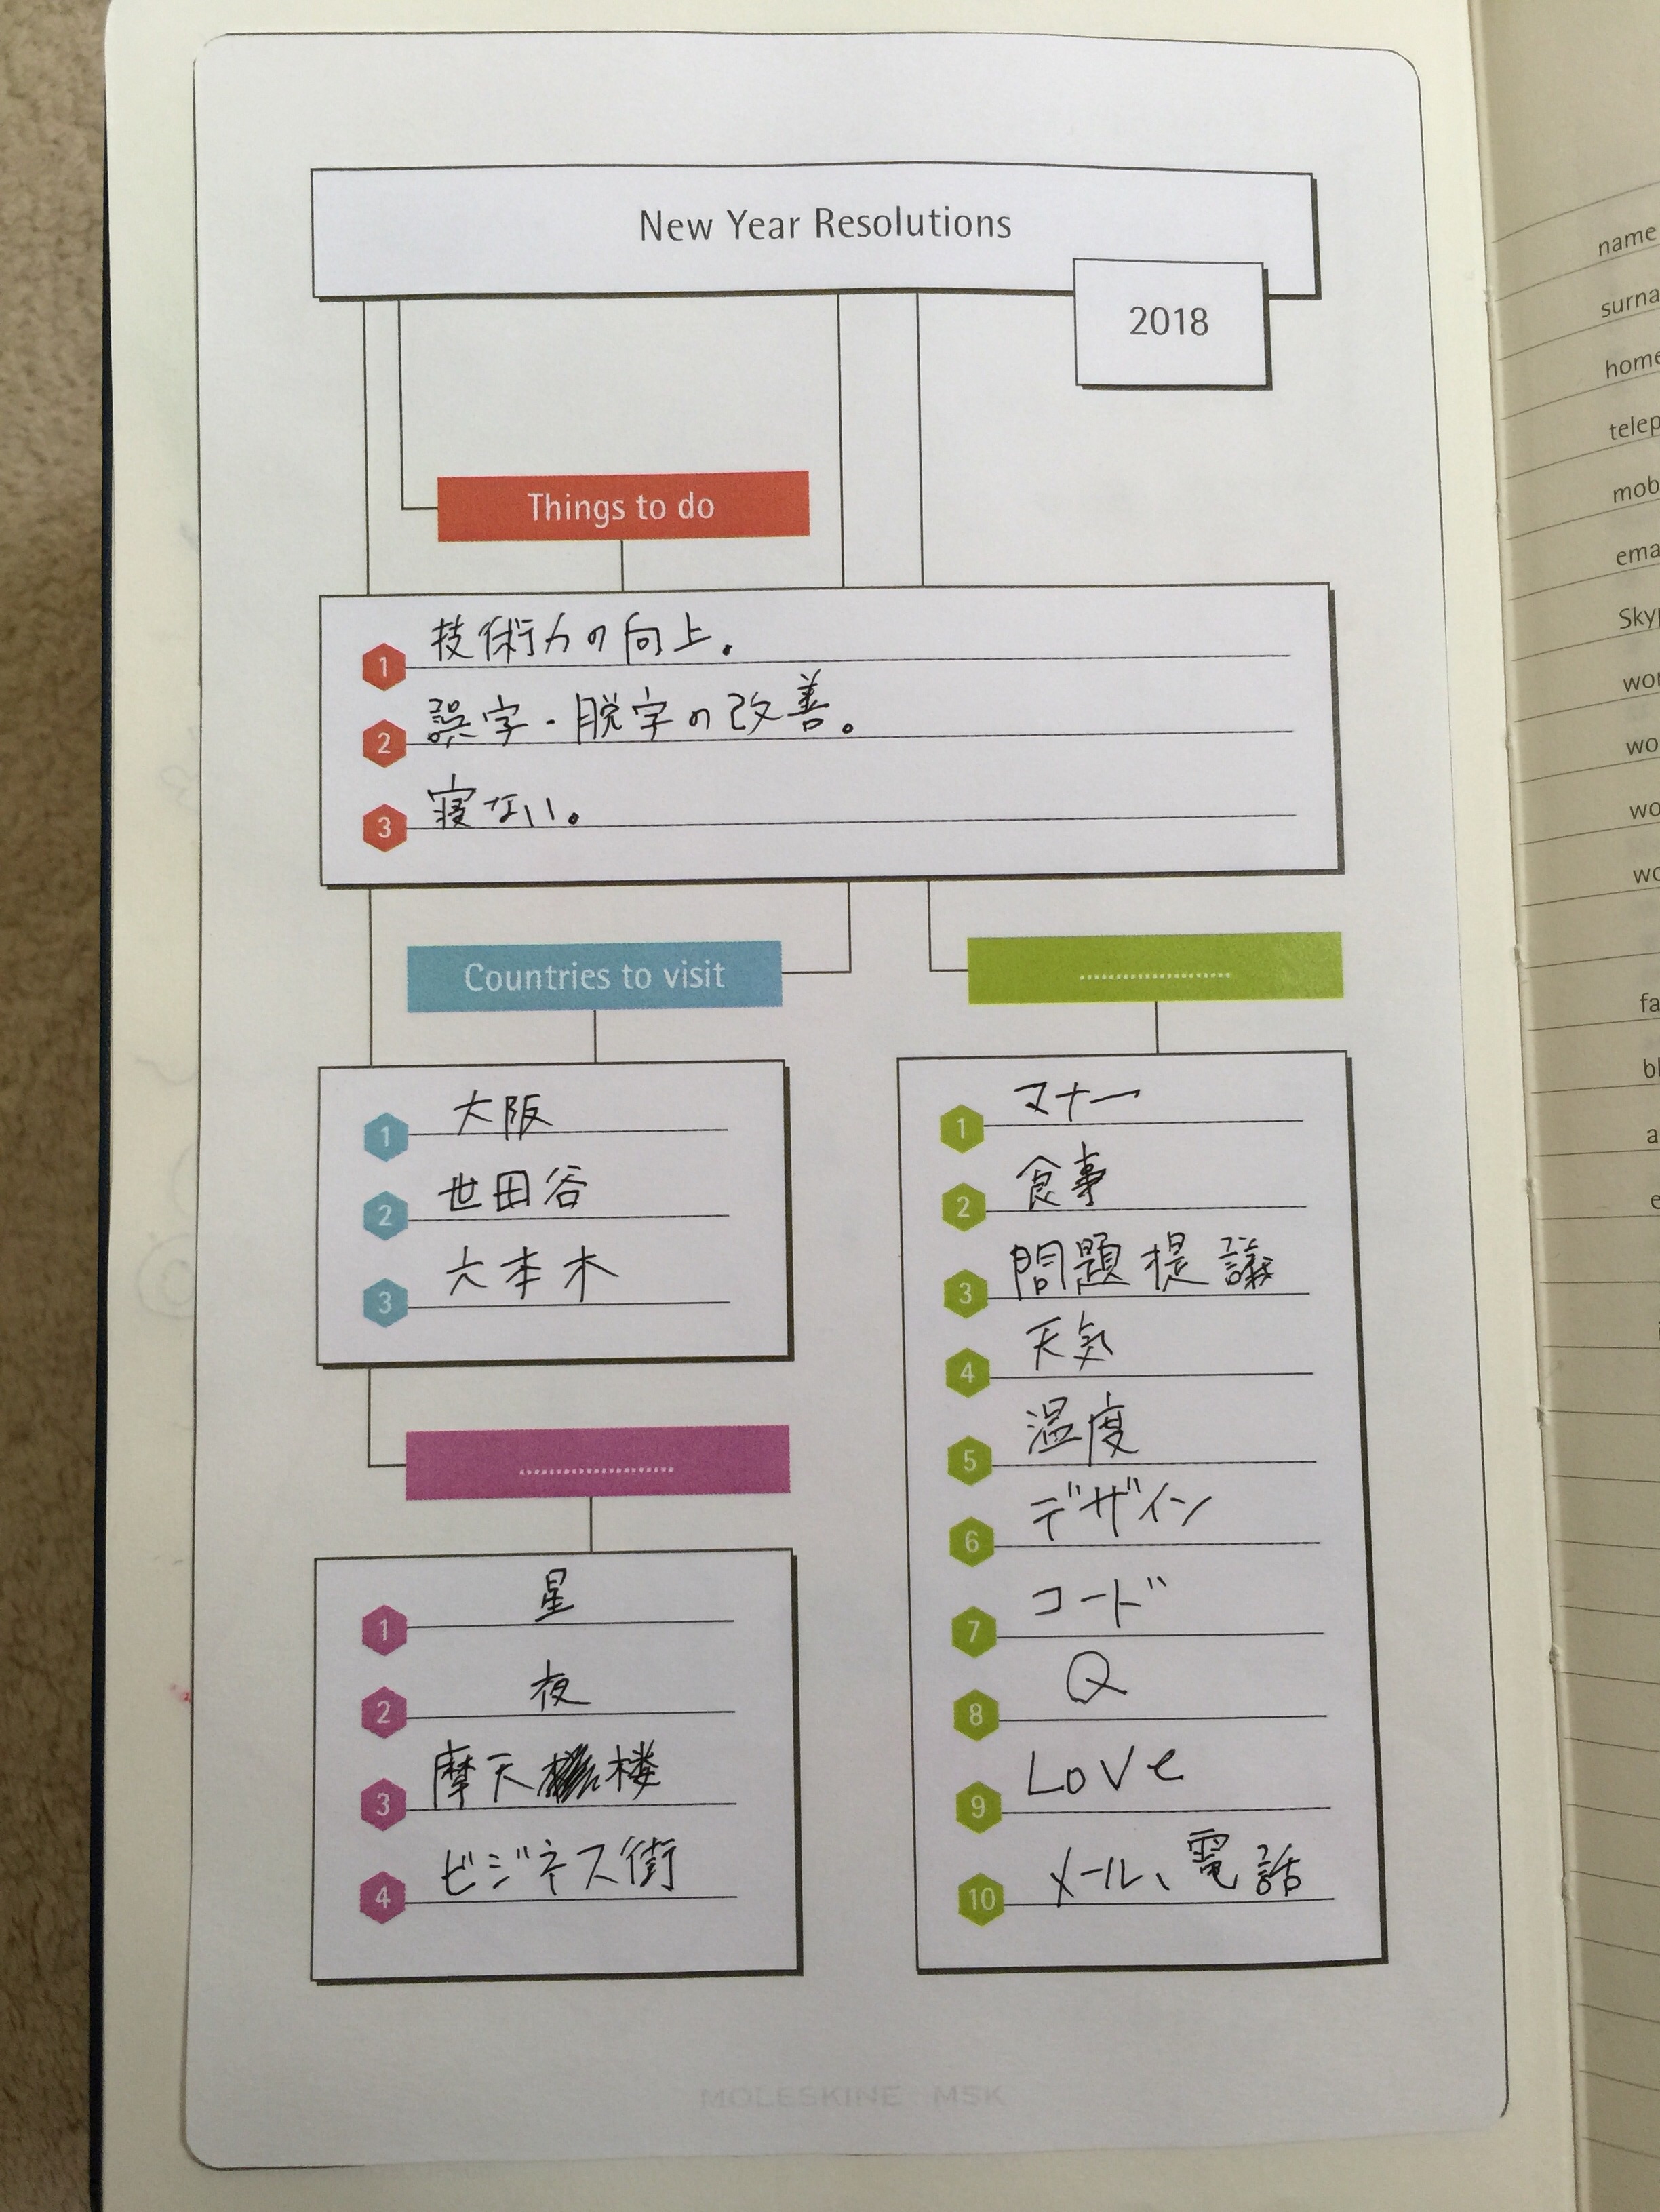 New Year Resolutions
2018
Things to do
1 技術力の向上.
2 誤字・脱字の改善。
3 寝ない。
Countries to visit
1 大阪
2 世田谷
3 六本木
1 星
2 夜
3 摩天楼
4 ビジネス街
1 マナー
2 食事
3 問題提議
4 天気
5 温度
6 デザイン
7 コード
8 Q
9 Love
10 メール、電話
MOLESKINE MSK
name
surna
home
telep
mob
ema
Sky
wo
wo
wo
fa
bl
a
e